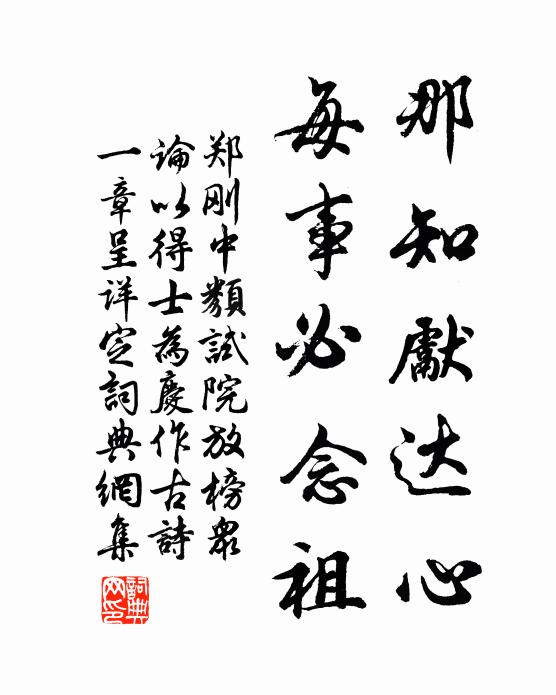 那知獻达心
每事必念祖
郑刚中類試院放榜眾
論以得士為慶作古詩
一章呈详定詞典網集
詞典網印